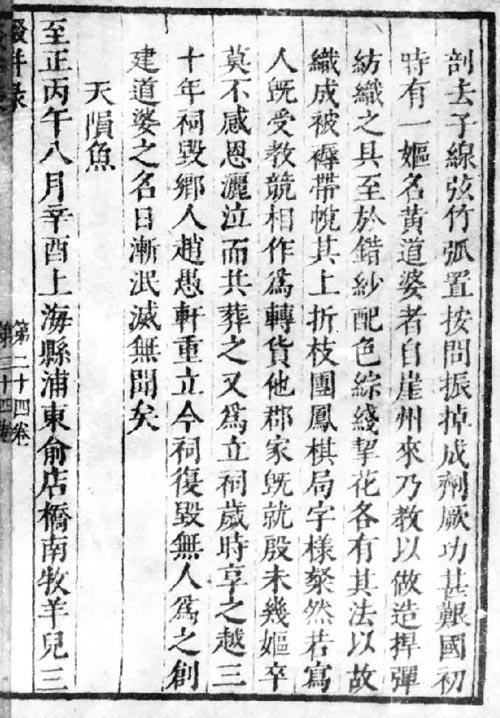 剖去子線弦竹弧置按間振掉成劑厥功甚艱國初
時有一嫗名黃道婆者自崖州來乃教以做造捍彈
紡織之具至於錯紗配色綜綫挈花各有其法以故
織成被褥帶帨其上折枝團鳳棋局字樣粲然若寫
人旣受教競相作爲轉貨他郡家旣就殷未幾嫗卒
莫不感恩灑泣而共葬之又爲立祠歲時享之越三
十年祠毀鄉人趙愚軒重立今祠復毀無人爲之創
建道婆之名日漸泯滅無聞矣
天隕魚
至正丙午八月辛酉上海縣浦東俞店橋南牧羊兒三
第二十四卷